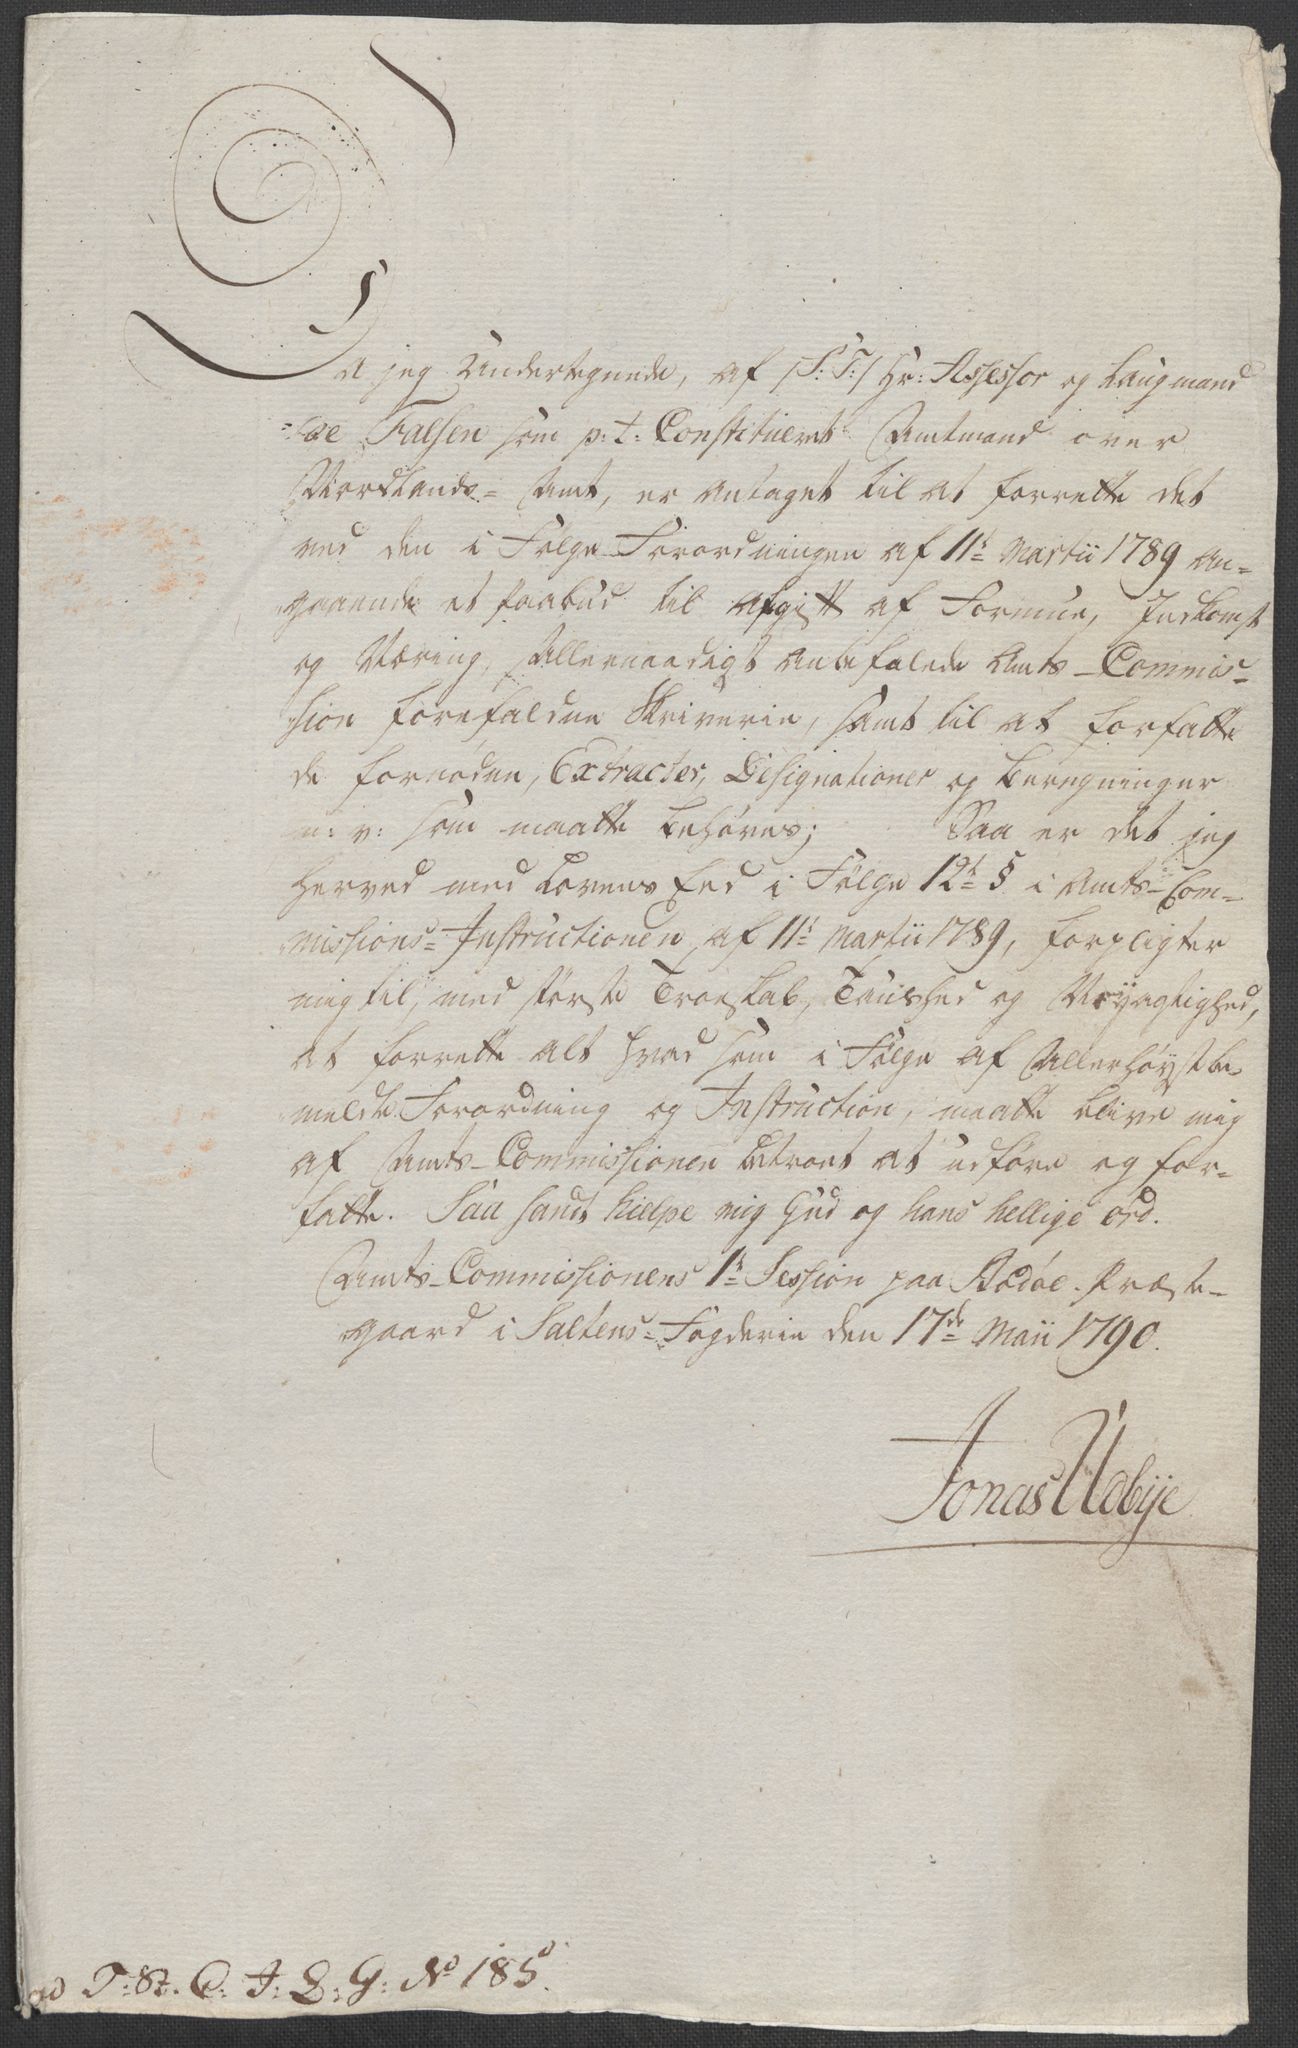 Da jeg Undertegnede, af /:S: T:/ Hr: Assessor og Laugmand
de Falsen som p: t: Constitueret Amtmand over
Nordlands= Amt, er antaget til at forrette det
ved den i Følge Forordningen af 11te Martii 1789 an=
gaaende et paabud til Afgift af Formue, Indkomst
og Næring, Allernaadigst anbefalede Amts-Commis=
sion forefaldne Skriverie, samt til at forfatte
de fornødne, Extracter, Designationer og beregninger
m: v: som maatte behøves; Saa er det jeg
herved med Lovens Eed i Følge 12te § i Amts-Com=
missions= Instructionen af 11te Martii 1789, forpligter
mig til, med største Troeskab, Taushed og Nøyagtighed,
at forrette alt hvad som i Følge af Allerhøystbe=
meldte Forordning og Instruction, maatte blive mig
af Amts-Commissionen betroet at udføre og for=
fatte. Saa sandt hielpe mig Gud og hans hellige ord.
Amts-Commissionens 1te Session paa Bodøe Præste=
gaard i Saltens= Fogderie den 17de Maii 1790.
Jonas Udbÿe
ad T: St. C: J: L: G: No 185d.